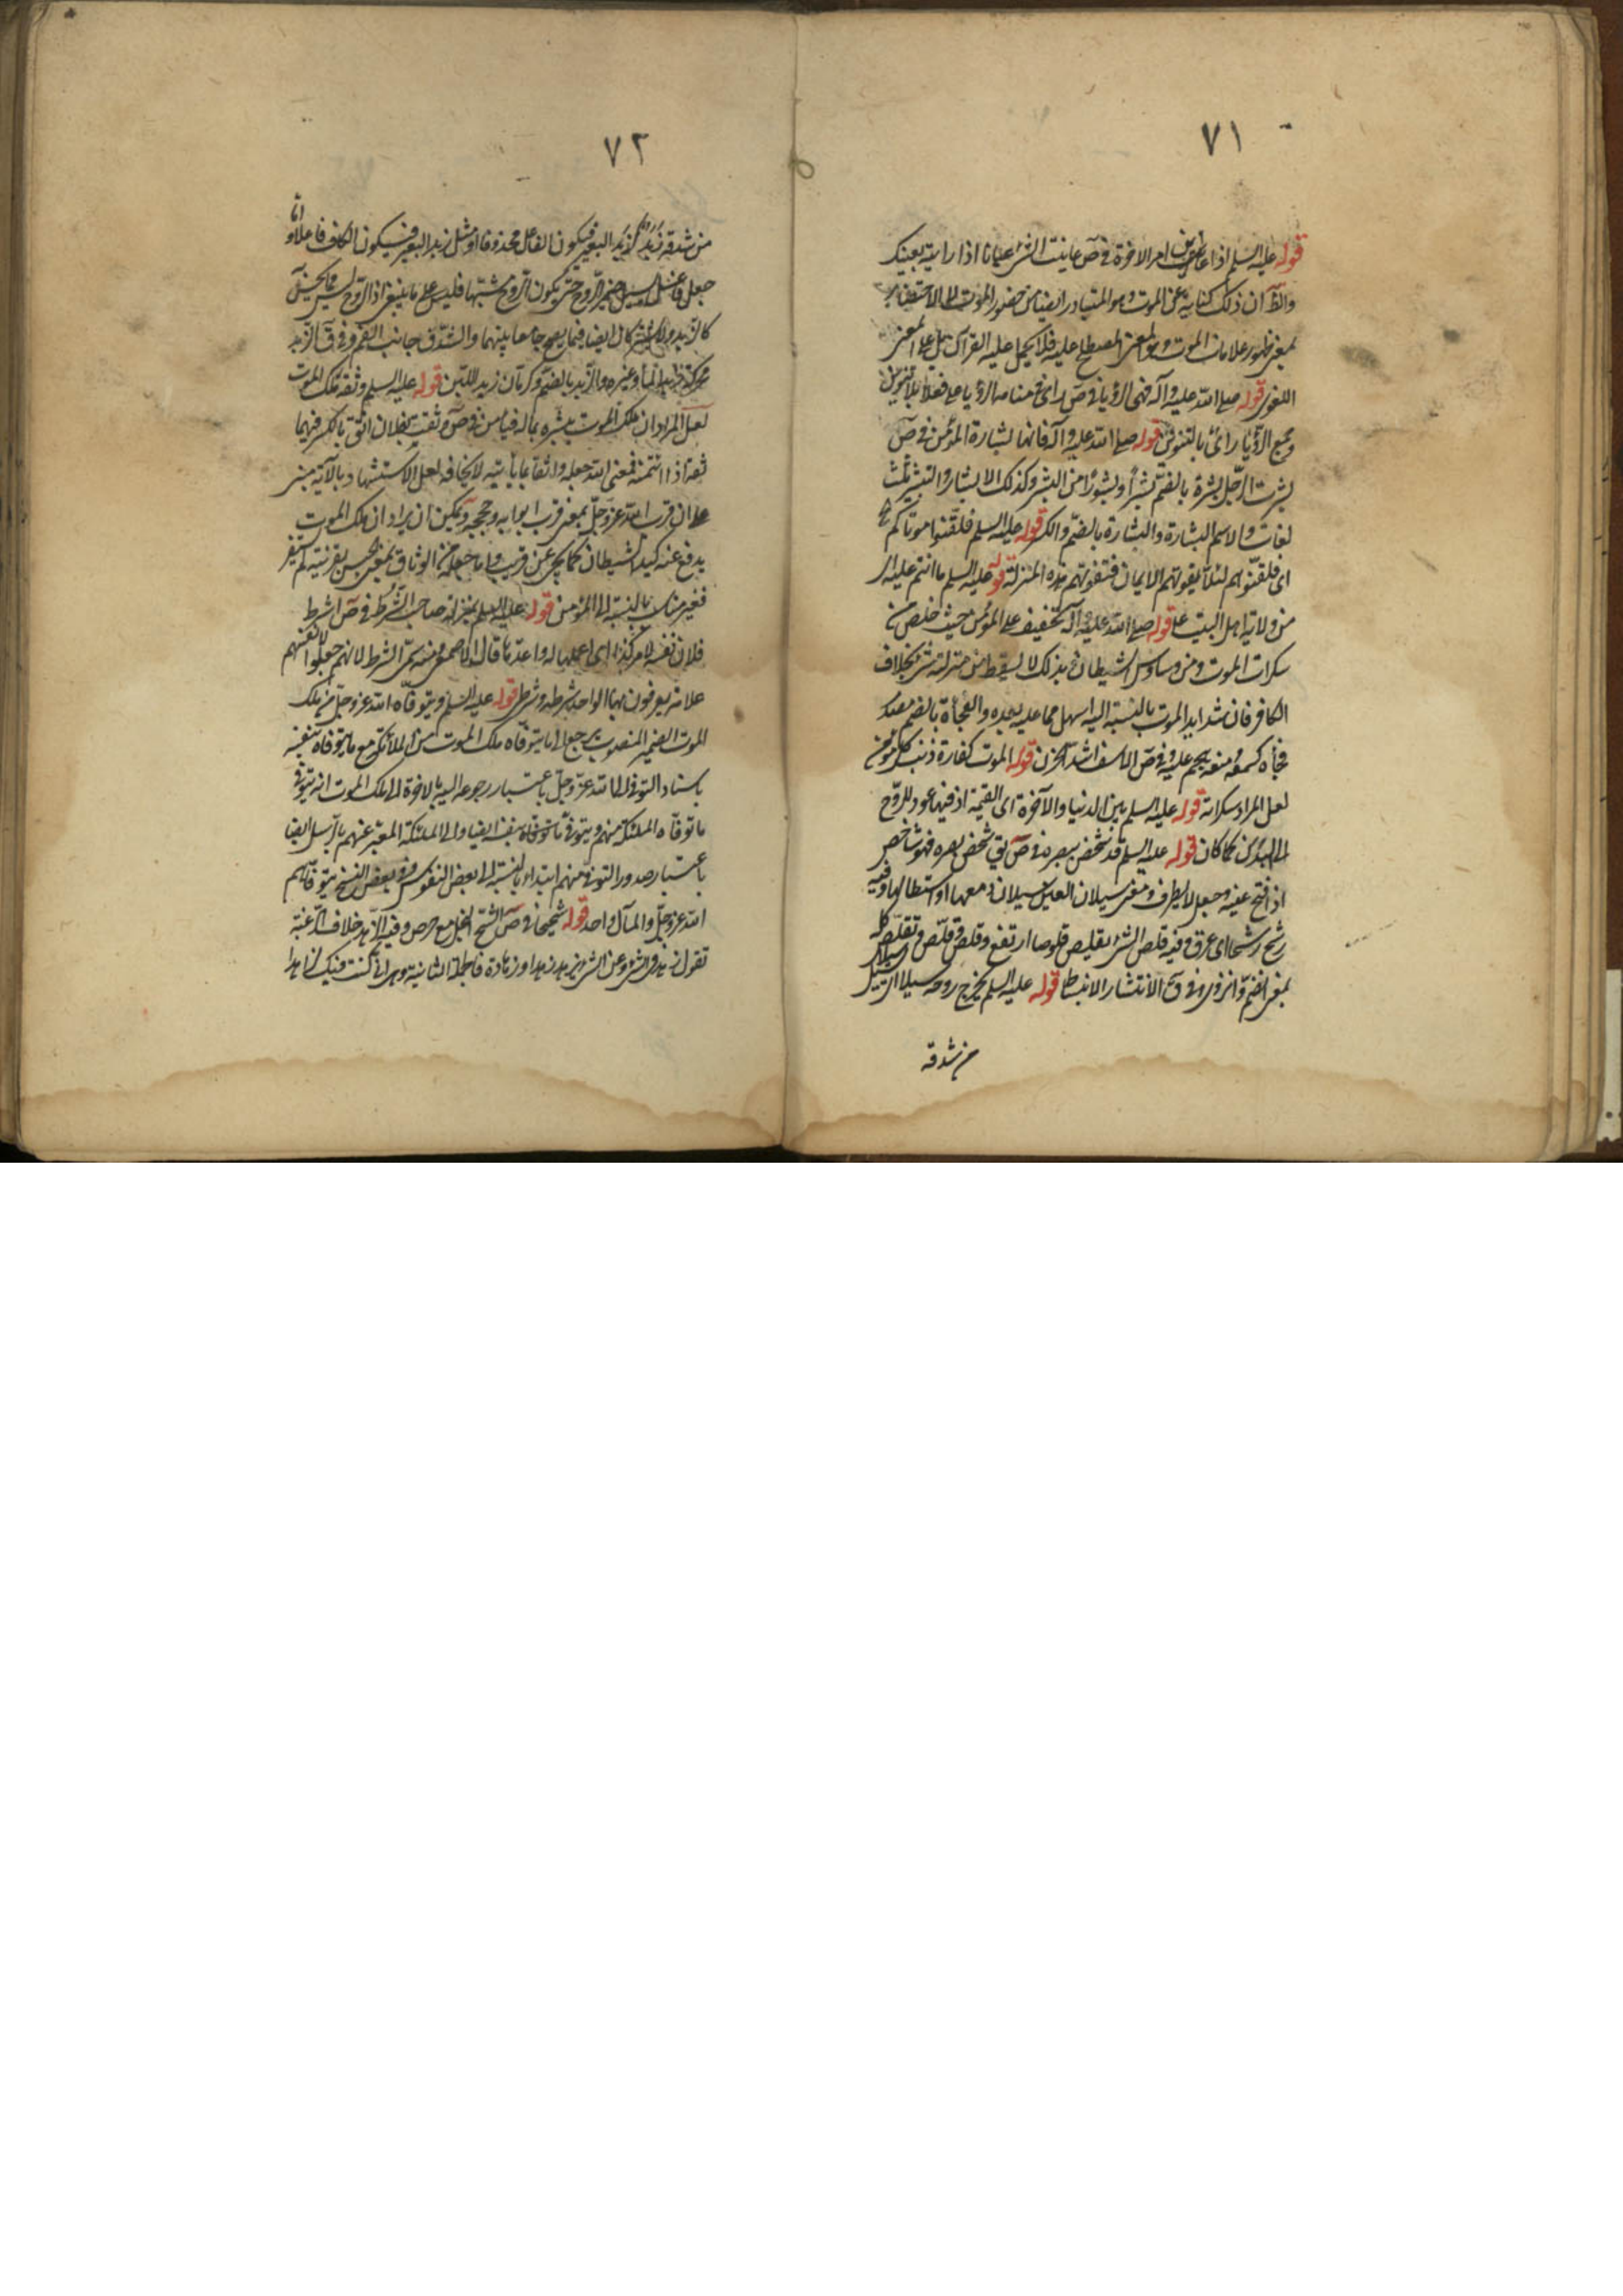 ٧١
قوله عليه السلم اذا عاين امر الاخرة في ص عاينت الشئ عيانا اذا رايته بعينك
والظ ان ذلك كناية عن الموت وهو المتبادر ايضا من حضور الموت لا الاحتضار
بمعنى ظهور علامات الموت وهو المعنى المصطلح عليه فلا يحمل عليه القرآن بل على المعنى
اللغوى قوله صلى الله عليه وآله فهى الرؤيا في ص رأى في منامه الرؤيا على فعلا بلا تنوين
وجمع الرؤيا رأى بالتنوين قوله صلى الله عليه وآله فانها لبشارة المؤمن في ص
بشرت الرجل بشرة بالضم بشرا وبشورا من البشر وكذلك الابشار والتبشير ثلث
لغات والاسم البشارة والبشارة بالضم والكسر قوله عليه السلم فلقنوا موتاكم
اى فلقنوهم لئلا يفوتهم الايمان فتفوتهم هذه المنزلة قوله عليه السلم ما انتم عليه اى
من ولاية اهل البيت ع قوله صلى الله عليه وآله تخفيف على المؤمن حيث خلص من
سكرات الموت ومن وساوس الشيطان بذلك لا يسقط من منزلته شئ بخلاف
الكافر فان شدايد الموت بالنسبة اليه اسهل مما عليه بعده والفجأة بالضم مصدر
فجأه كسمعه ومنعه هجم عليه وفي ص الاسف اشد الحزن قوله الموت كفارة ذنب كل مؤمن
لعل المراد سكراته قوله عليه السلم بين الدنيا والآخرة اى القيمة اذ فيها عود للروح
الى البدن كما كان قوله عليه السلم قد شخص ببصره في ص يق شخص بصره فهو شاخص
اذا فتح عينه وجعل لا يطرف ومعنى سيلان العين سيلان دمعها او استطالها وفيه
رشح رشحا اى عرق وفيه قلص الشئ يقلص قلوصا ارتفع وقلص وقلّص وتقلّص كله
بمعنى انضم وانزوى وفي ق الانتشار الانبساط قوله عليه السلم يخرج روحه سيلا
من شدقه
٧٢
من شدقه زبد كزبد البعير فيكون الفاعل محذوفا او مثل زبد البعير فيكون الكاف فاعلا واما
جعل فاعل يسيل ضمير الروح حتى يكون الروح مشبها فليس على ما ينبغى اذ الروح ليس مما يحسن
كالزبد ايضا فيما يصح جامعا بينهما والشدق جانب الفم وفي ق الزبد
محركة زبد الماء وغيره والزبد بالضم وكرمان زبد اللبن قوله عليه السلم وثقه ملك الموت
لعل المراد ان ملك الموت بشره بما له في ص وثقت بفلان اثق بالكسر فيهما
ثقة اذا ائتمنته فمعنى الله جعله واثقا بما يأتيه لا يخافه لعل الاستشهاد بالآية مبنى
على ان قرب الله عزوجل بمعنى قرب ابوابه وحججه ويمكن ان يراد ان ملك الموت
يدفع عنه كيد الشيطان كما يجئ عن قريب واما جعله من الوثاق بمعنى الحبس بقرنيته
فغير مناسب بالنسبة الى المؤمن قوله عليه السلم بمنزلة صاحب الشرط في ص اشرط
فلان نفسه لامر كذا اى اعلمها له واعدها قال الاصمعى ومنه سمى الشرط لانهم جعلوا لانفسهم
علامة يعرفون بها الواحد شرطة وشرطى قوله عليه السلم ويتوفاه الله عزوجل من ملك
الموت الضمير المنصوب يرجع الى ما يتوفاه ملك الموت من الملائكة مع ما يتوفاه بنفسه
باسناد التوفى الى الله عزوجل باعتبار رجوعه اليه بالاخرة الى ملك الموت انه يتوفى
ما توفاه الملئكة منهم ويتوفى ما توفاه بنفسه ايضا والى الملئكة المعبر عنهم بالرسل ايضا
باعتبار صدور التوفى منهم ابتداء بالنسبة الى بعض النفوس وفي بعض النسخ يتوفاهم
الله عزوجل والمآل واحد قوله شحيحا في ص الشح البخل مع حرص وفيه الزهد خلاف الرغبة
تقول زهد في الشئ وعن الشئ يزهد زهدا وزهادة فالجملة الثانية وهى انى كنت فيك زاهدا